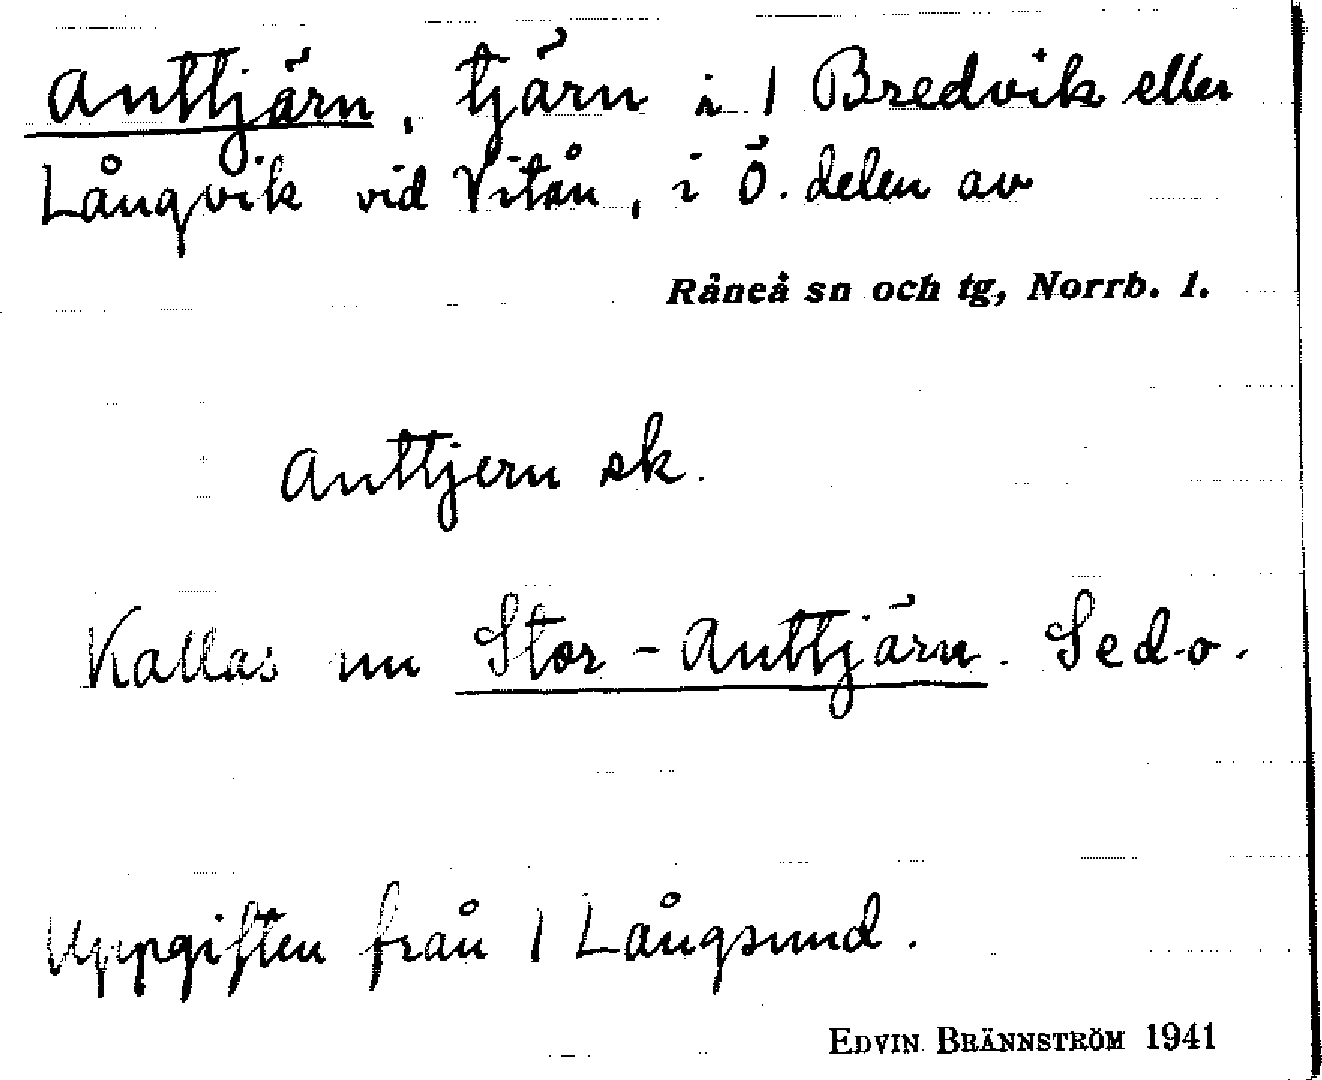 Anttjärn, tjärn i l Bredvik eller
Långvik vid Vitån, i Ö. delen av
Råneå sn och tg, Norrb. l.
Anttjern sk.
Kallas nu Stor-Anttjärn. Se d.o.
Uppgiften från l Långsund.
EDVIN BRÄNNSTRÖM 1941